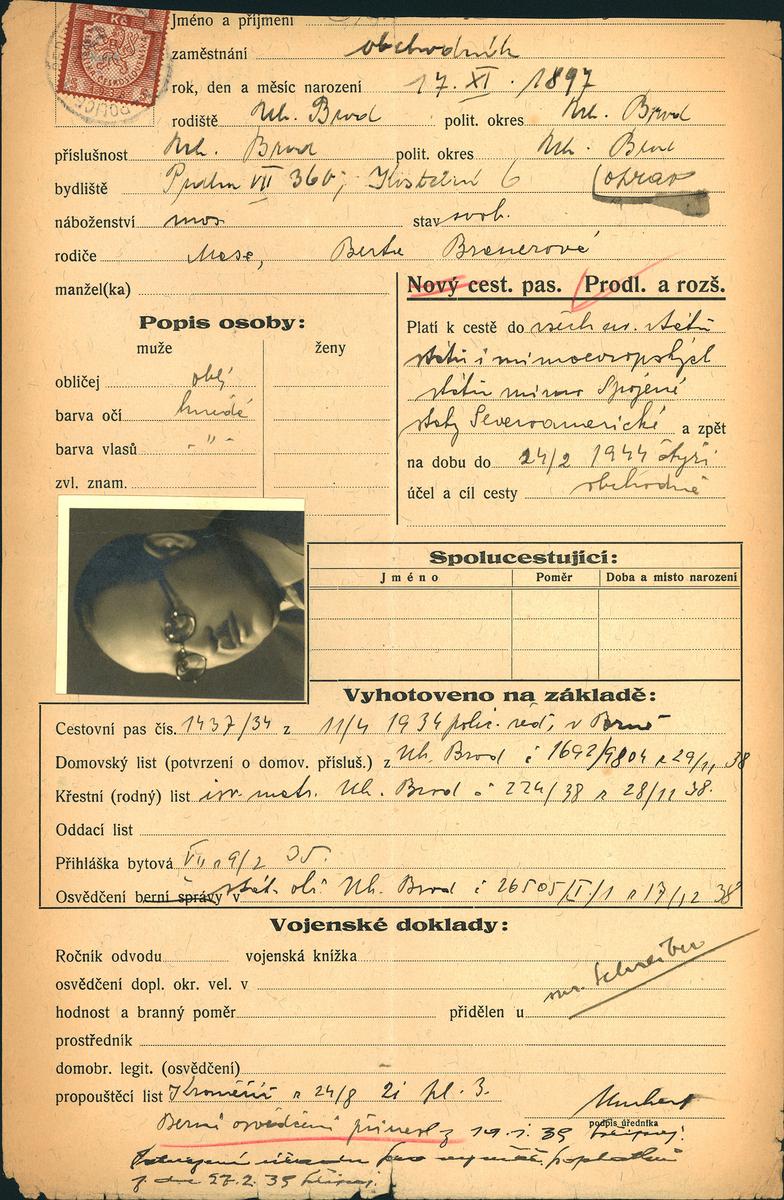 Kč
Jméno a příjmení
zaměstnání obchodník
rok, den a měsíc narození 17. XI. 1897
rodiště Uh. Brod polit. okres Uh. Brod
příslušnost Uh. Brod polit. okres Uh. Brod
bydliště Praha VII 360, Kostelní 6
náboženství mos. stav svob.
rodiče Berta
manžel(ka)
Nový cest. pas. Prodl. a rozš.
Popis osoby:
muže ženy
obličej oblý
barva očí hnědé
barva vlasů -"-
zvl. znam.
Platí k cestě do všech ev. států
států i mimoevropských
států mimo Spojené
státy Severoamerické a zpět
na dobu do 24/2 1944 čtyři
účel a cíl cesty obchodně
Spolucestující:
Jméno Poměr Doba a místo narození
Vyhotoveno na základě:
Cestovní pas čís. 1437/34 z 11/4 1934 polic. řed. v Brně
Domovský list (potvrzení o domov. přísluš.) z Uh. Brod č 1692/9804 z 29/11 38
Křestní (rodný) list isr. matr. Uh. Brod č 224/38 z 28/11 38.
Oddací list
Přihláška bytová VII z 9/2 35.
Osvědčení berní správy v Uh. Brod č 26505/I/1 z 17/12 38
Vojenské doklady:
Ročník odvodu vojenská knižka
osvědčení dopl. okr. vel. v
hodnost a branný poměr přidělen u
prostředník
domobr. legit. (osvědčení)
propouštěcí list Kroměříž z 24/8 21 pl. 3.
podpis úředníka
Berní osvědčení přinesl z 19. 1. 39
z dne 27. 2. 39